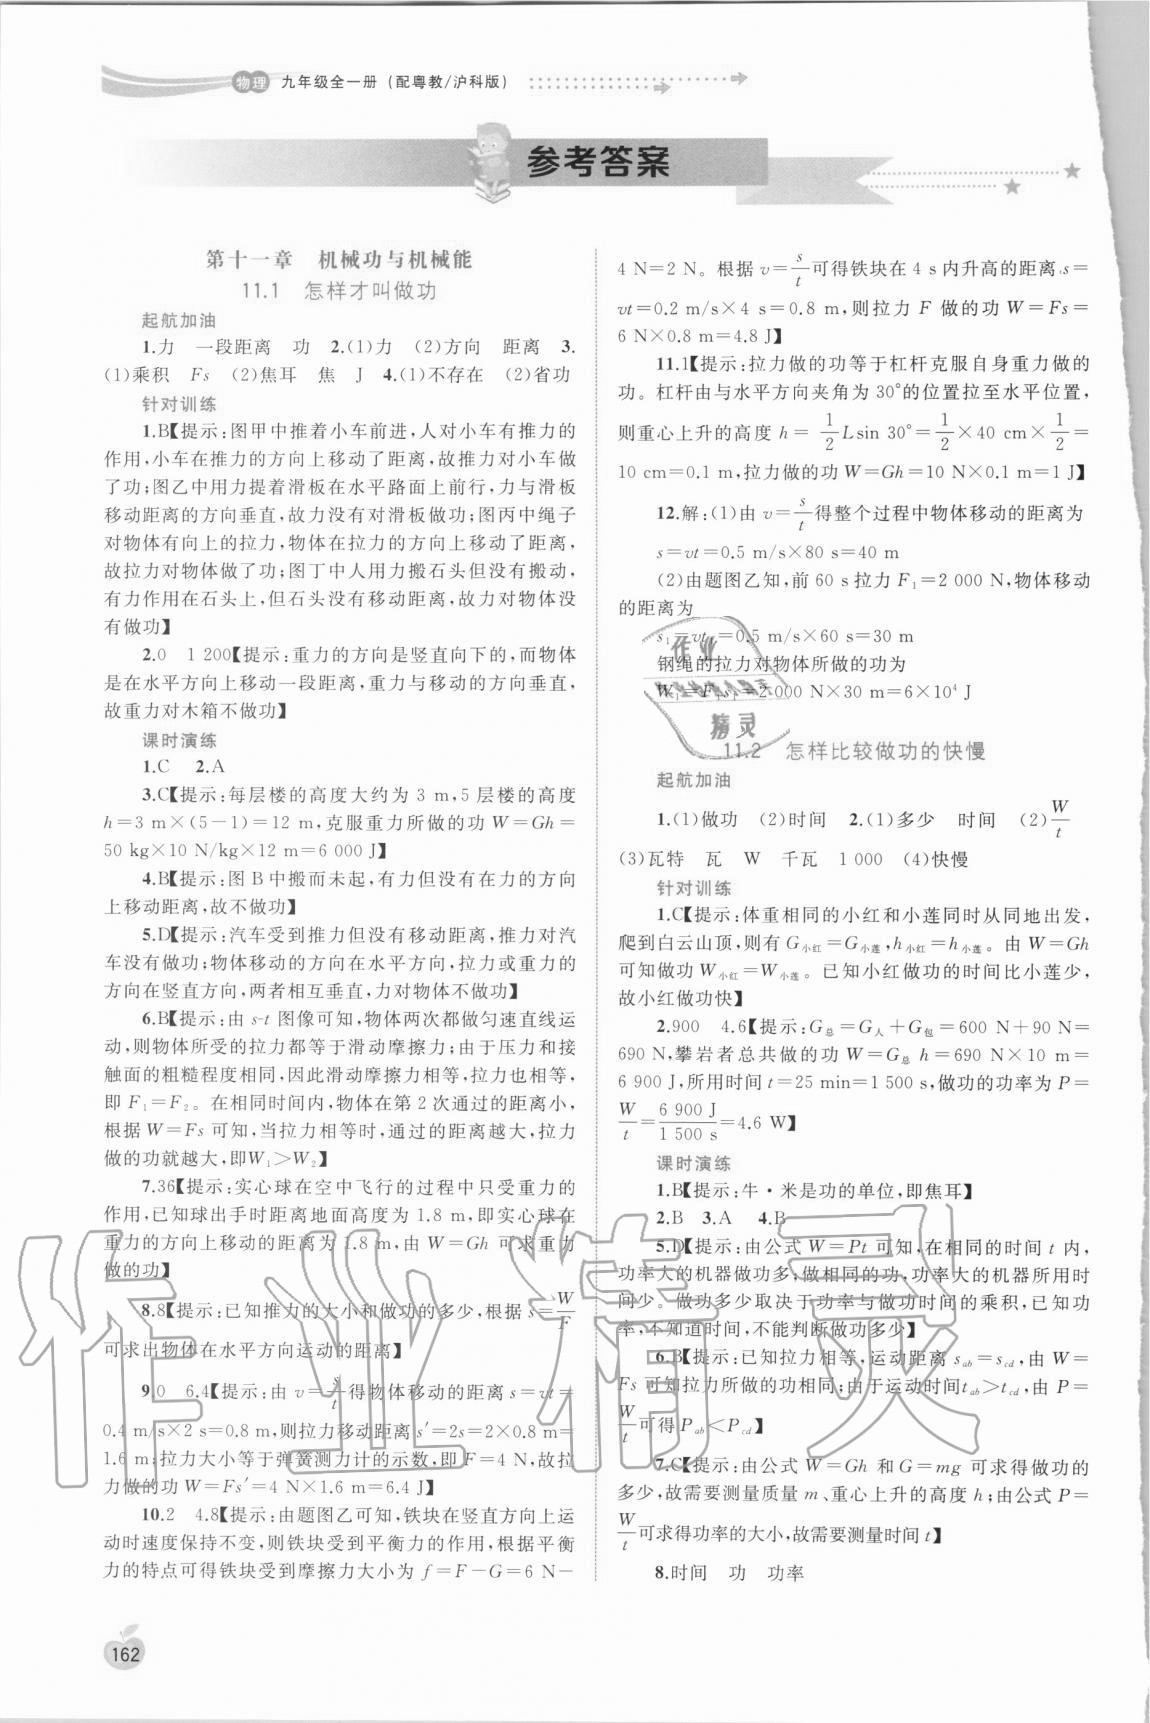 物理 九年级全一册(配粤教/沪科版)
参考答案
第十一章 机械功与机械能
11.1 怎样才叫做功
起航加油
1.力 一段距离 功 2.(1)力 (2)方向 距离 3.
(1)乘积 Fs (2)焦耳 焦 J 4.(1)不存在 (2)省功
针对训练
1.B【提示:图甲中推着小车前进,人对小车有推力的
作用,小车在推力的方向上移动了距离,故推力对小车做
了功;图乙中用力提着滑板在水平路面上前行,力与滑板
移动距离的方向垂直,故力没有对滑板做功;图丙中绳子
对物体有向上的拉力,物体在拉力的方向上移动了距离,
故拉力对物体做了功;图丁中人用力搬石头但没有搬动,
有力作用在石头上,但石头没有移动距离,故力对物体没
有做功】
2.0 1 200【提示:重力的方向是竖直向下的,而物体
是在水平方向上移动一段距离,重力与移动的方向垂直,
故重力对木箱不做功】
课时演练
1.C 2.A
3.C【提示:每层楼的高度大约为 3 m,5 层楼的高度
h=3 m×(5-1)=12 m,克服重力所做的功 W=Gh=
50 kg×10 N/kg×12 m=6 000 J】
4.B【提示:图 B 中搬而未起,有力但没有在力的方向
上移动距离,故不做功】
5.D【提示:汽车受到推力但没有移动距离,推力对汽
车没有做功;物体移动的方向在水平方向,拉力或重力的
方向在竖直方向,两者相互垂直,力对物体不做功】
6.B【提示:由 s-t 图像可知,物体两次都做匀速直线运
动,则物体所受的拉力都等于滑动摩擦力;由于压力和接
触面的粗糙程度相同,因此滑动摩擦力相等,拉力也相等,
即 F₁=F₂。在相同时间内,物体在第 2 次通过的距离小,
根据 W=Fs 可知,当拉力相等时,通过的距离越大,拉力
做的功就越大,即W₁>W₂】
7.36【提示:实心球在空中飞行的过程中只受重力的
作用,已知球出手时距离地面高度为 1.8 m,即实心球在
重力的方向上移动的距离为 1.8 m,由 W=Gh 可求重力
做的功】
8.8【提示:已知推力的大小和做功的多少,根据 s=W/F
可求出物体在水平方向运动的距离】
9.0 6.4【提示:由 v=s/t得物体移动的距离 s=vt=
0.4 m/s×2 s=0.8 m,则拉力移动距离 s′=2s=2×0.8 m=
1.6 m;拉力大小等于弹簧测力计的示数,即 F=4 N,故拉
力做的功 W=Fs′=4 N×1.6 m=6.4 J】
10.2 4.8【提示:由题图乙可知,铁块在竖直方向上运
动时速度保持不变,则铁块受到平衡力的作用,根据平衡
力的特点可得铁块受到摩擦力大小为 f=F-G=6 N-
4 N=2 N。根据 v=s/t可得铁块在 4 s 内升高的距离 s=
vt=0.2 m/s×4 s=0.8 m,则拉力 F 做的功 W=Fs=
6 N×0.8 m=4.8 J】
11.1【提示:拉力做的功等于杠杆克服自身重力做的
功。杠杆由与水平方向夹角为 30°的位置拉至水平位置,
则重心上升的高度 h= 1/2 Lsin 30°=1/2×40 cm×1/2=
10 cm=0.1 m,拉力做的功 W=Gh=10 N×0.1 m=1 J】
12.解:(1)由 v=s/t得整个过程中物体移动的距离为
s=vt=0.5 m/s×80 s=40 m
(2)由题图乙知,前 60 s 拉力 F₁=2 000 N,物体移动
的距离为
s₁=vt₁=0.5 m/s×60 s=30 m
钢绳的拉力对物体所做的功为
W₁=F₁s₁=2 000 N×30 m=6×10⁴ J
11.2 怎样比较做功的快慢
起航加油
1.(1)做功 (2)时间 2.(1)多少 时间 (2)W/t
(3)瓦特 瓦 W 千瓦 1 000 (4)快慢
针对训练
1.C【提示:体重相同的小红和小莲同时从同地出发,
爬到白云山顶,则有 G小红=G小莲,h小红=h小莲。由 W=Gh
可知做功 W小红=W小莲。已知小红做功的时间比小莲少,
故小红做功快】
2.900 4.6【提示:G总=G人+G包=600 N+90 N=
690 N,攀岩者总共做的功 W=G总 h=690 N×10 m=
6 900 J,所用时间 t=25 min=1 500 s,做功的功率为 P=
W/t=6 900 J/1 500 s=4.6 W】
课时演练
1.B【提示:牛·米是功的单位,即焦耳】
2.B 3.A 4.B
5.D【提示:由公式 W=Pt 可知,在相同的时间 t 内,
功率大的机器做功多;做相同的功,功率大的机器所用时
间少。做功多少取决于功率与做功时间的乘积,已知功
率,不知道时间,不能判断做功多少】
6.B【提示:已知拉力相等,运动距离 sab=scd,由 W=
Fs 可知拉力所做的功相同;由于运动时间tab>tcd,由 P=
W/t可得 Pab<Pcd】
7.C【提示:由公式 W=Gh 和 G=mg 可求得做功的
多少,故需要测量质量 m、重心上升的高度 h;由公式 P=
W/t可求得功率的大小,故需要测量时间 t】
8.时间 功 功率
162
作业
精灵
作业精灵